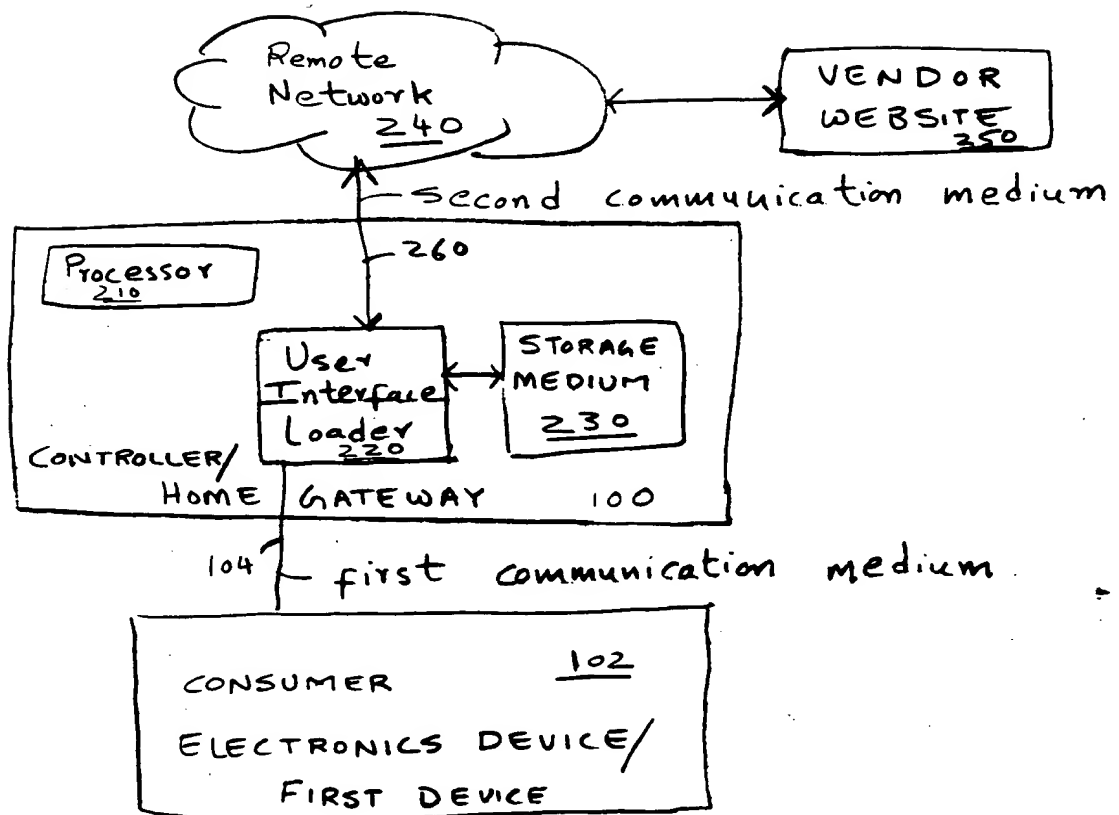 Remote
Network
240
VENDOR
WEBSITE
250
second communication medium
260
Processor
210
User
Interface
Loader
220
STORAGE
MEDIUM
230
CONTROLLER/
HOME GATEWAY 100
104
first communication medium
CONSUMER 102
ELECTRONICS DEVICE/
FIRST DEVICE